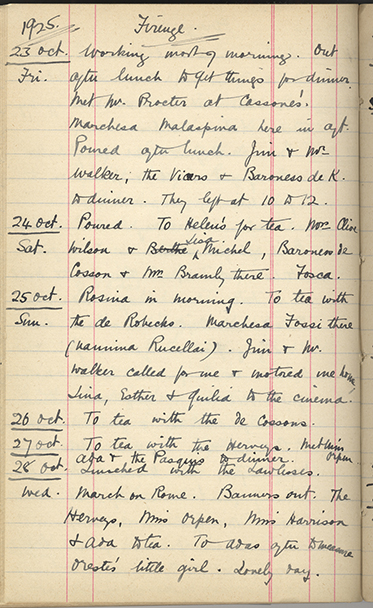 1925. Firenze.
23 Oct. Working most of morning. Out
Fri. after lunch to get things for dinner.
Met Mr. Procter at Cassone's.
Marchesa Malaspina here in aft.
Poured after lunch. Jim & Mr.
Walker, the Vicars & Baroness de K.
to dinner. They left at 10 to 12.
24 Oct. Poured. To Helen's for tea. Mrs Clive
Sat. Wilson & Berthe Lisa Michel, Baroness de
Cosson & Mrs Bramly there. Tosca.
25 Oct. Rosina in morning. To tea with
Sun. the de Robecks. Marchesa Fossi there
(Nannina Rucellai). Jim & Mr.
Walker called for me & motored me home
Lina, Esther & Guilia to the cinema.
26 Oct. To tea with the de Cossons.
27 Oct. To tea with the Herveys. Met him
Ada & the Pasquis to dinner. Orpen.
28 Oct. Lunched with the Lawlesses.
Wed. March on Rome. Banners out. The
Herveys, Miss Orpen, Miss Harrison
& Ada to tea. To Adas after to measure
Oreste's little girl. Lovely day.